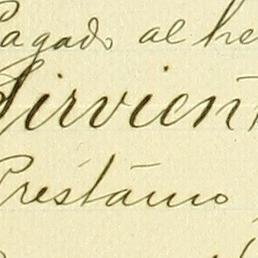 Pagado al he
Sirvient
Préstamo